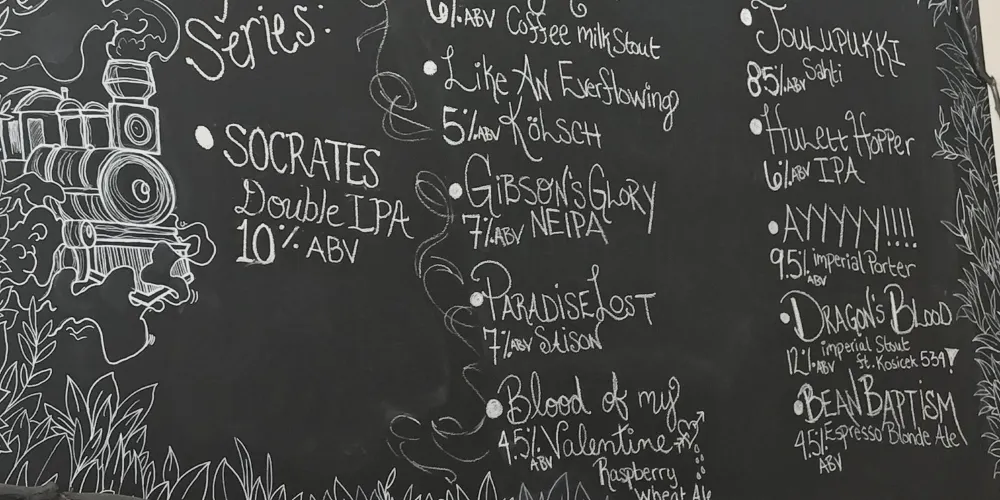 Series:
SOCRATES
Double IPA
10% ABV
6% ABV Coffee milk Stout
Like An Everflowing
5% ABV Kölsch
Gibson's Glory
7% ABV NEIPA
Paradise Lost
7% ABV Saison
Blood of my
4.5% ABV Valentine
Raspberry
Wheat Ale
Joulupukki
8.5% ABV Sahti
Hulett Hopper
6% ABV IPA
AYYYYY!!!!
9.5% ABV imperial Porter
Dragon's Blood
12% ABV imperial Stout
ft. Kosicek 534
Bean Baptism
4.5% ABV Espresso Blonde Ale